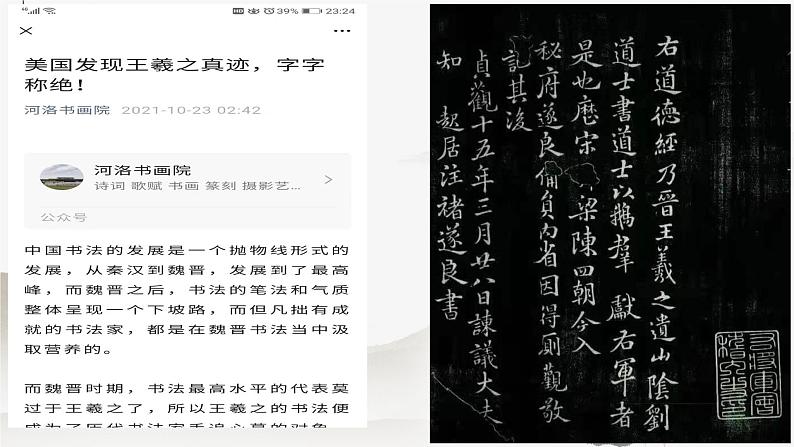 4G 39% 23:24
美国发现王羲之真迹，字字
称绝！
河洛书画院 2021-10-23 02:42
河洛书画院
诗词 歌赋 书画 篆刻 摄影艺...
公众号
中国书法的发展是一个抛物线形式的
发展，从秦汉到魏晋，发展到了最高
峰，而魏晋之后，书法的笔法和气质
整体呈现一个下坡路，而但凡拙有成
就的书法家，都是在魏晋书法当中汲
取营养的。
而魏晋时期，书法最高水平的代表莫
过于王羲之了，所以王羲之的书法便
成为了历代书法家手追心慕的对象
右道德經乃晉王羲之遺山陰劉
道士書道士以鵝羣獻右軍者
是也厯宋梁陳四朝今入
秘府遂良備員内省因得厠觀敬
記其後
貞觀十五年三月廿八日諫議大夫
知起居注褚遂良書